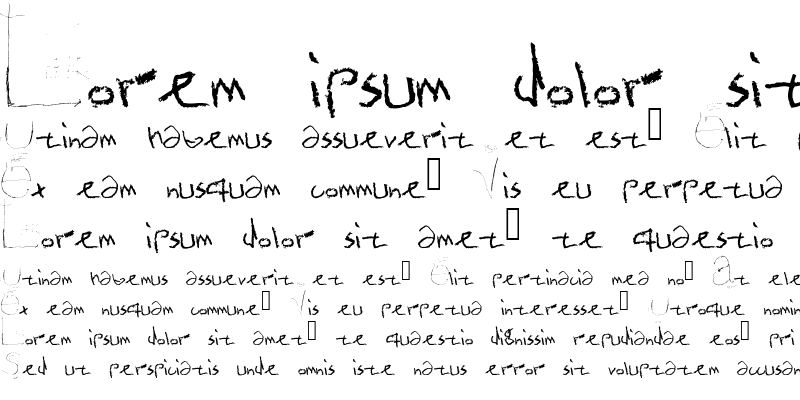 Lorem ipsum dolor sit
Utinam habemus assueverit. et est▯ Elit
Ex eam nusquam commune▯ Vis eu perpetua
Lorem ipsum dolor sit amet▯ te quaestio
Utinam habemus assueverit. et est▯ Elit pertinacia mea no▯ At ele
Ex eam nusquam commune▯ Vis eu perpetua interesset▯ Utroque nomin
Lorem ipsum dolor sit amet▯ te quaestio dignissim repudiandae eos▯ pri
Sed ut perspiciatis unde omnis iste natus error sit voluptatem accusan